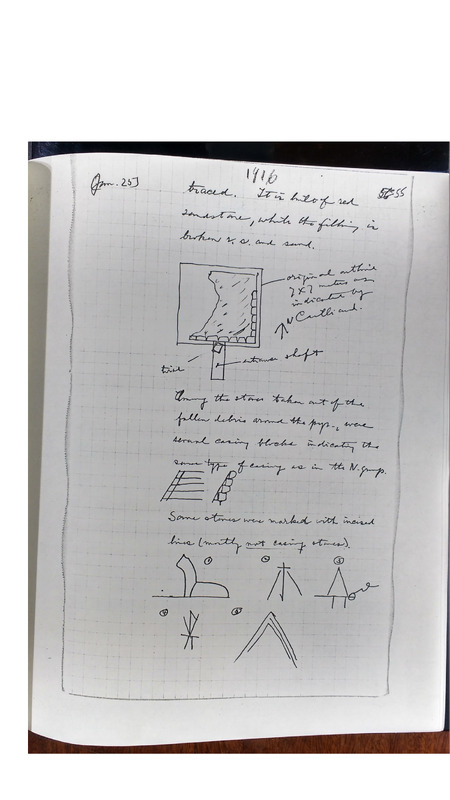 1916
Jan. 25]
55
traced. It is built of red
sandstone, while the filling is
broken r. s. and sand.
original outline
7 x 7 metres as
indicated by
N
entrance shaft
Among the stones taken out of the
fallen debris around the pyr., were
several casing blocks indicating the
same type of casing as in the N. group.
Some stones were marked with incised
lines (mostly not casing stones).
① ② ③
④ ⑤